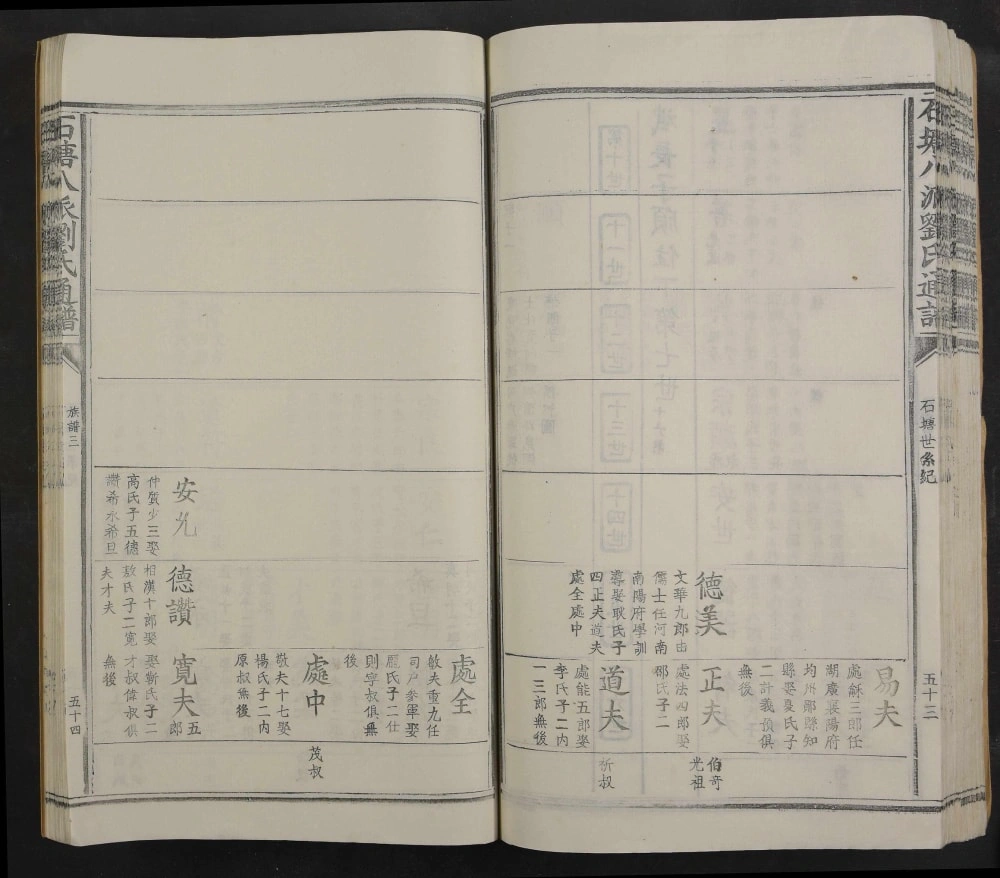 石塘八派劉氏通譜
石塘世系紀
五十三
德美
文華九郎由
儒士任河南
南陽府學訓
導娶耿氏子
四正夫道夫
處全處中
易夫
處龢三郎任
湖廣襄陽府
均州鄖縣知
縣娶吳氏子
二計義預俱
無後
正夫
處法四郎娶
邵氏子二
道夫
處能五郎娶
李氏子二內
一三郎無後
伯奇
光祖
祈叔
石塘八派劉氏通譜
族譜三
五十四
安允
仲質少三娶
高氏子五德
讚希永希旦
德讚
相漢十郎娶
敖氏子二寬
夫才夫
處全
敏夫重九任
司戶參軍娶
龐氏子二仕
則寧叔俱無
後
處中
敬夫十七娶
楊氏子二內
原叔無後
寬夫五郎
娶靳氏子二
才叔偉叔俱
無後
茂叔